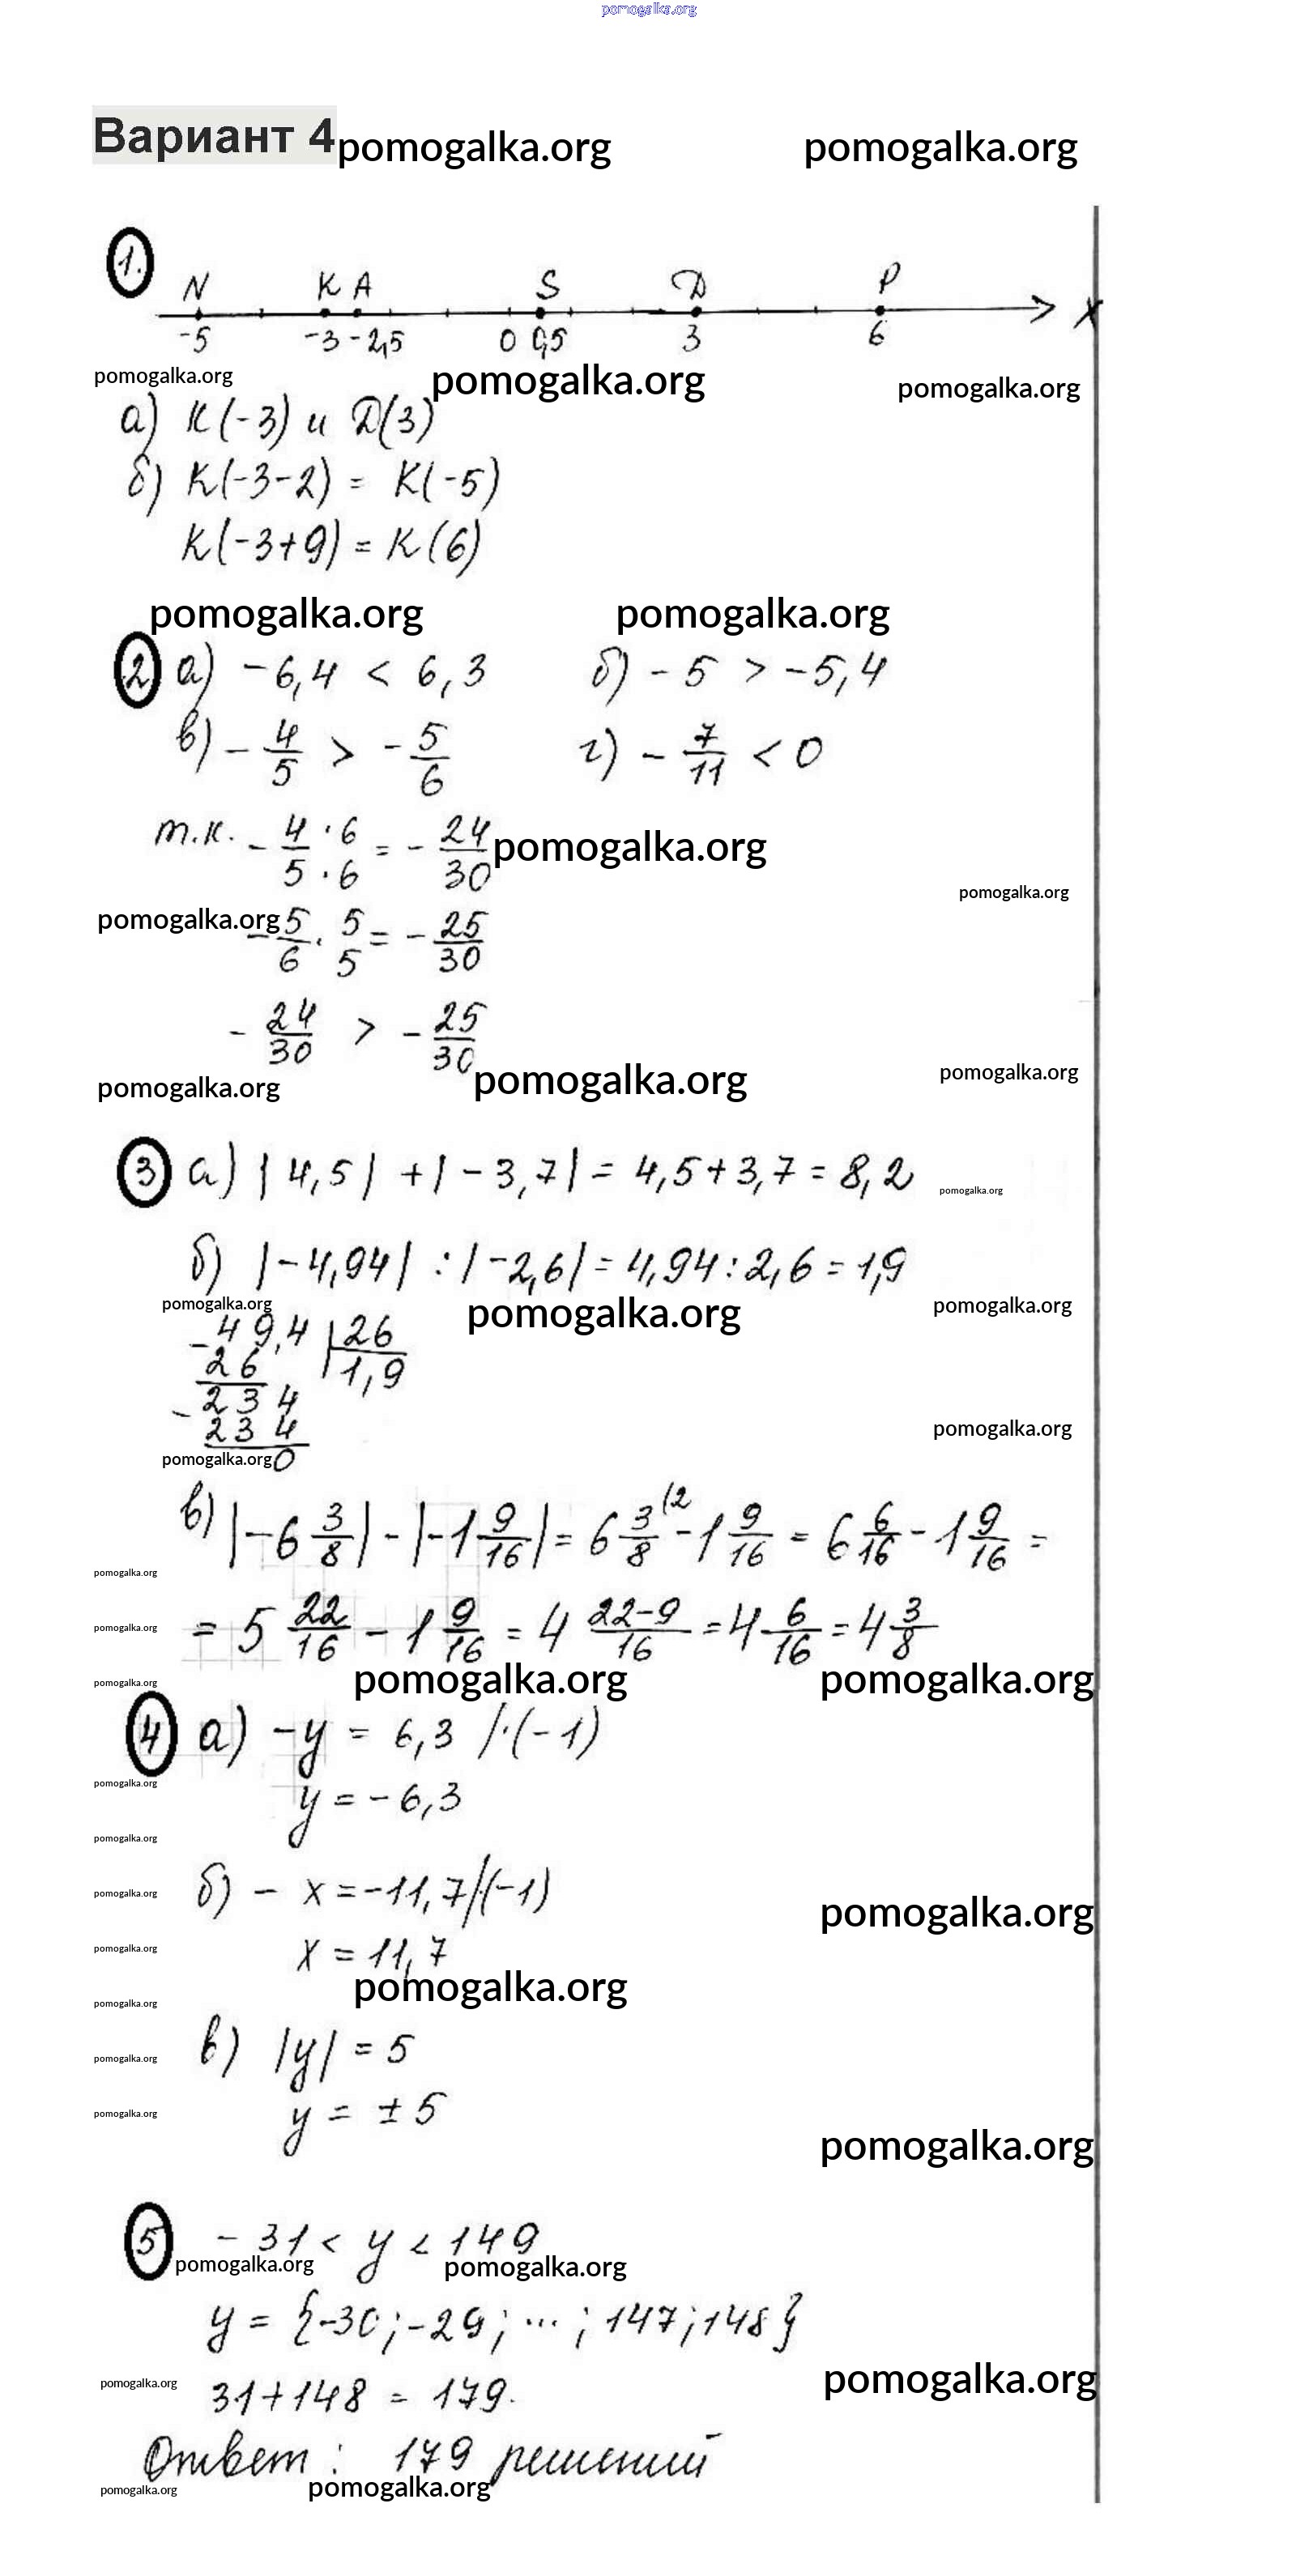 pomogalka.org
Вариант 4 pomogalka.org pomogalka.org
1.
N K A S D P
-5 -3 -2,5 0 0,5 3 6 X
pomogalka.org pomogalka.org pomogalka.org
а) K(-3) и D(3)
б) K(-3-2) = K(-5)
K(-3+9) = K(6)
pomogalka.org pomogalka.org
2 а) -6,4 < 6,3 б) -5 > -5,4
в) - 4/5 > - 5/6 г) - 7/11 < 0
т.к. - 4·6/5·6 = - 24/30 pomogalka.org
pomogalka.org
pomogalka.org - 5/6 · 5/5 = - 25/30
- 24/30 > - 25/30
pomogalka.org pomogalka.org pomogalka.org
3 а) |4,5| + |-3,7| = 4,5+3,7 = 8,2
pomogalka.org
б) |-4,94| : |-2,6| = 4,94:2,6 = 1,9
pomogalka.org pomogalka.org pomogalka.org
-49,4 | 26
26 | 1,9
-234
234
pomogalka.org
pomogalka.org 0
в) |-6 3/8| - |-1 9/16| = 6 3/8 (2 - 1 9/16 = 6 6/16 - 1 9/16 =
pomogalka.org
= 5 22/16 - 1 9/16 = 4 22-9/16 = 4 6/16 = 4 3/8
pomogalka.org
pomogalka.org pomogalka.org pomogalka.org
4 а) -y = 6,3 /·(-1)
pomogalka.org
y = -6,3
pomogalka.org
б) -x = -11,7 /(-1)
pomogalka.org pomogalka.org
x = 11,7
pomogalka.org
pomogalka.org
pomogalka.org
в) |y| = 5
pomogalka.org
y = ±5
pomogalka.org
pomogalka.org
5 -31 < y < 149
pomogalka.org pomogalka.org
y = {-30; -29; ...; 147; 148}
pomogalka.org pomogalka.org
31+148 = 179.
Ответ: 179 решений
pomogalka.org pomogalka.org